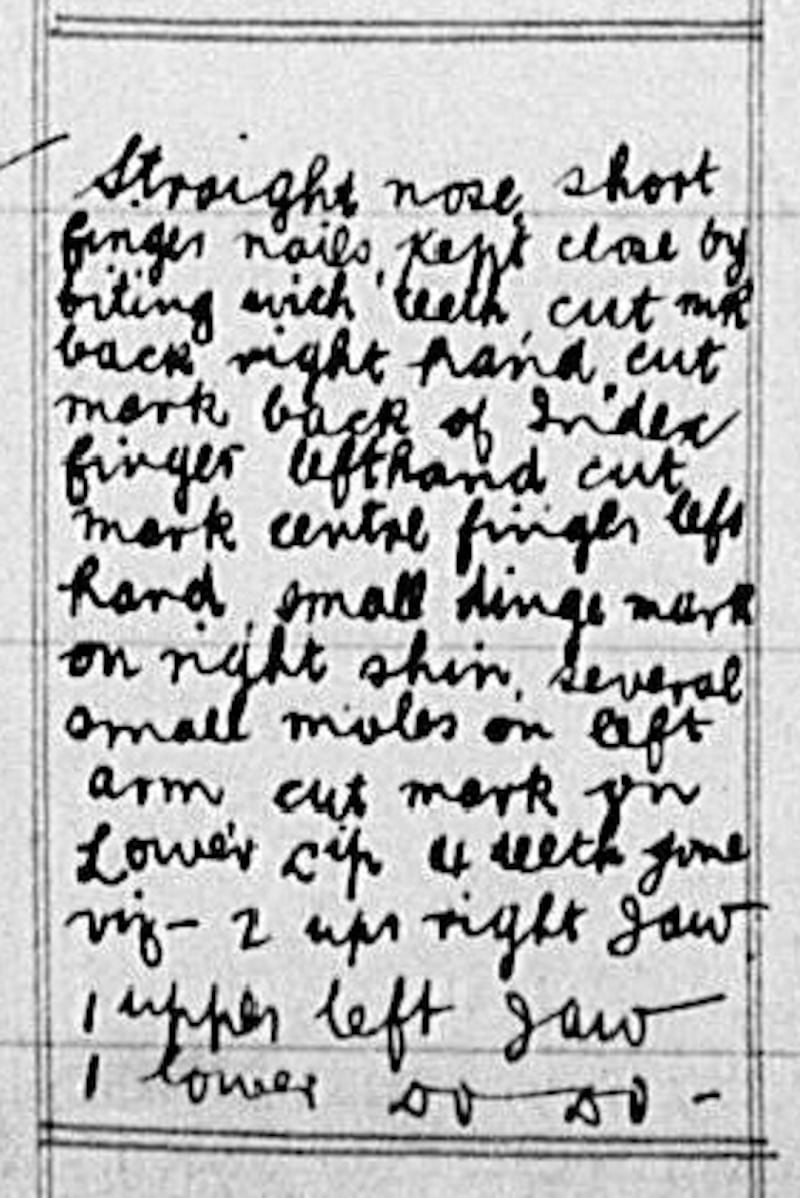 Straight nose, short
finger nails, kept close by
biting with teeth, cut mk
back right hand, cut
mark back of Index
finger left hand cut
mark central finger left
hand, small dinge mark
on right shin, several
small moles on left
arm cut mark on
Lower Lip 4 teeth gone
viz - 2 upr right Jaw
1 upper left Jaw
1 lower do do -